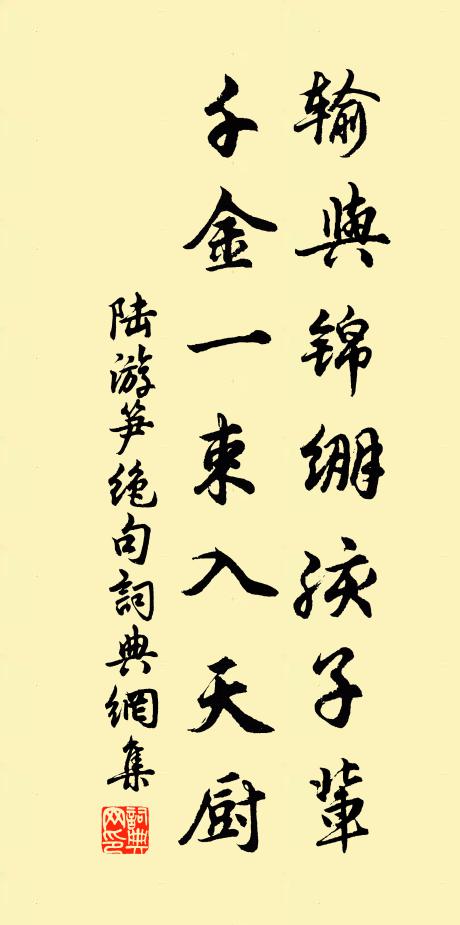 输与锦绷孩子辈
千金一束入天厨
陆游笋绝句詞典網集
詞典网印